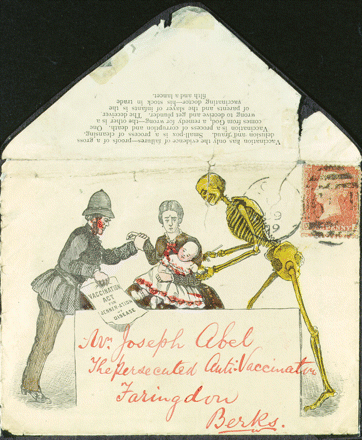 Vaccination has only the evidence of failures—proofs of a gross
delusion and fraud. Small-pox is a process of cleansing,
Vaccination is a process of corruption and death. One
comes from God, a remedy for wrong—the other is a
wrong to deceive and get plunder. The deceiver
of parents and the slayer of infants is the
vaccinating doctor—his stock in trade
filth and a lancet.
VACCINATION
ACT
FOR
DISEASE
Mr. Joseph Abel
The persecuted Anti-Vaccinator
Faringdon
Berks.